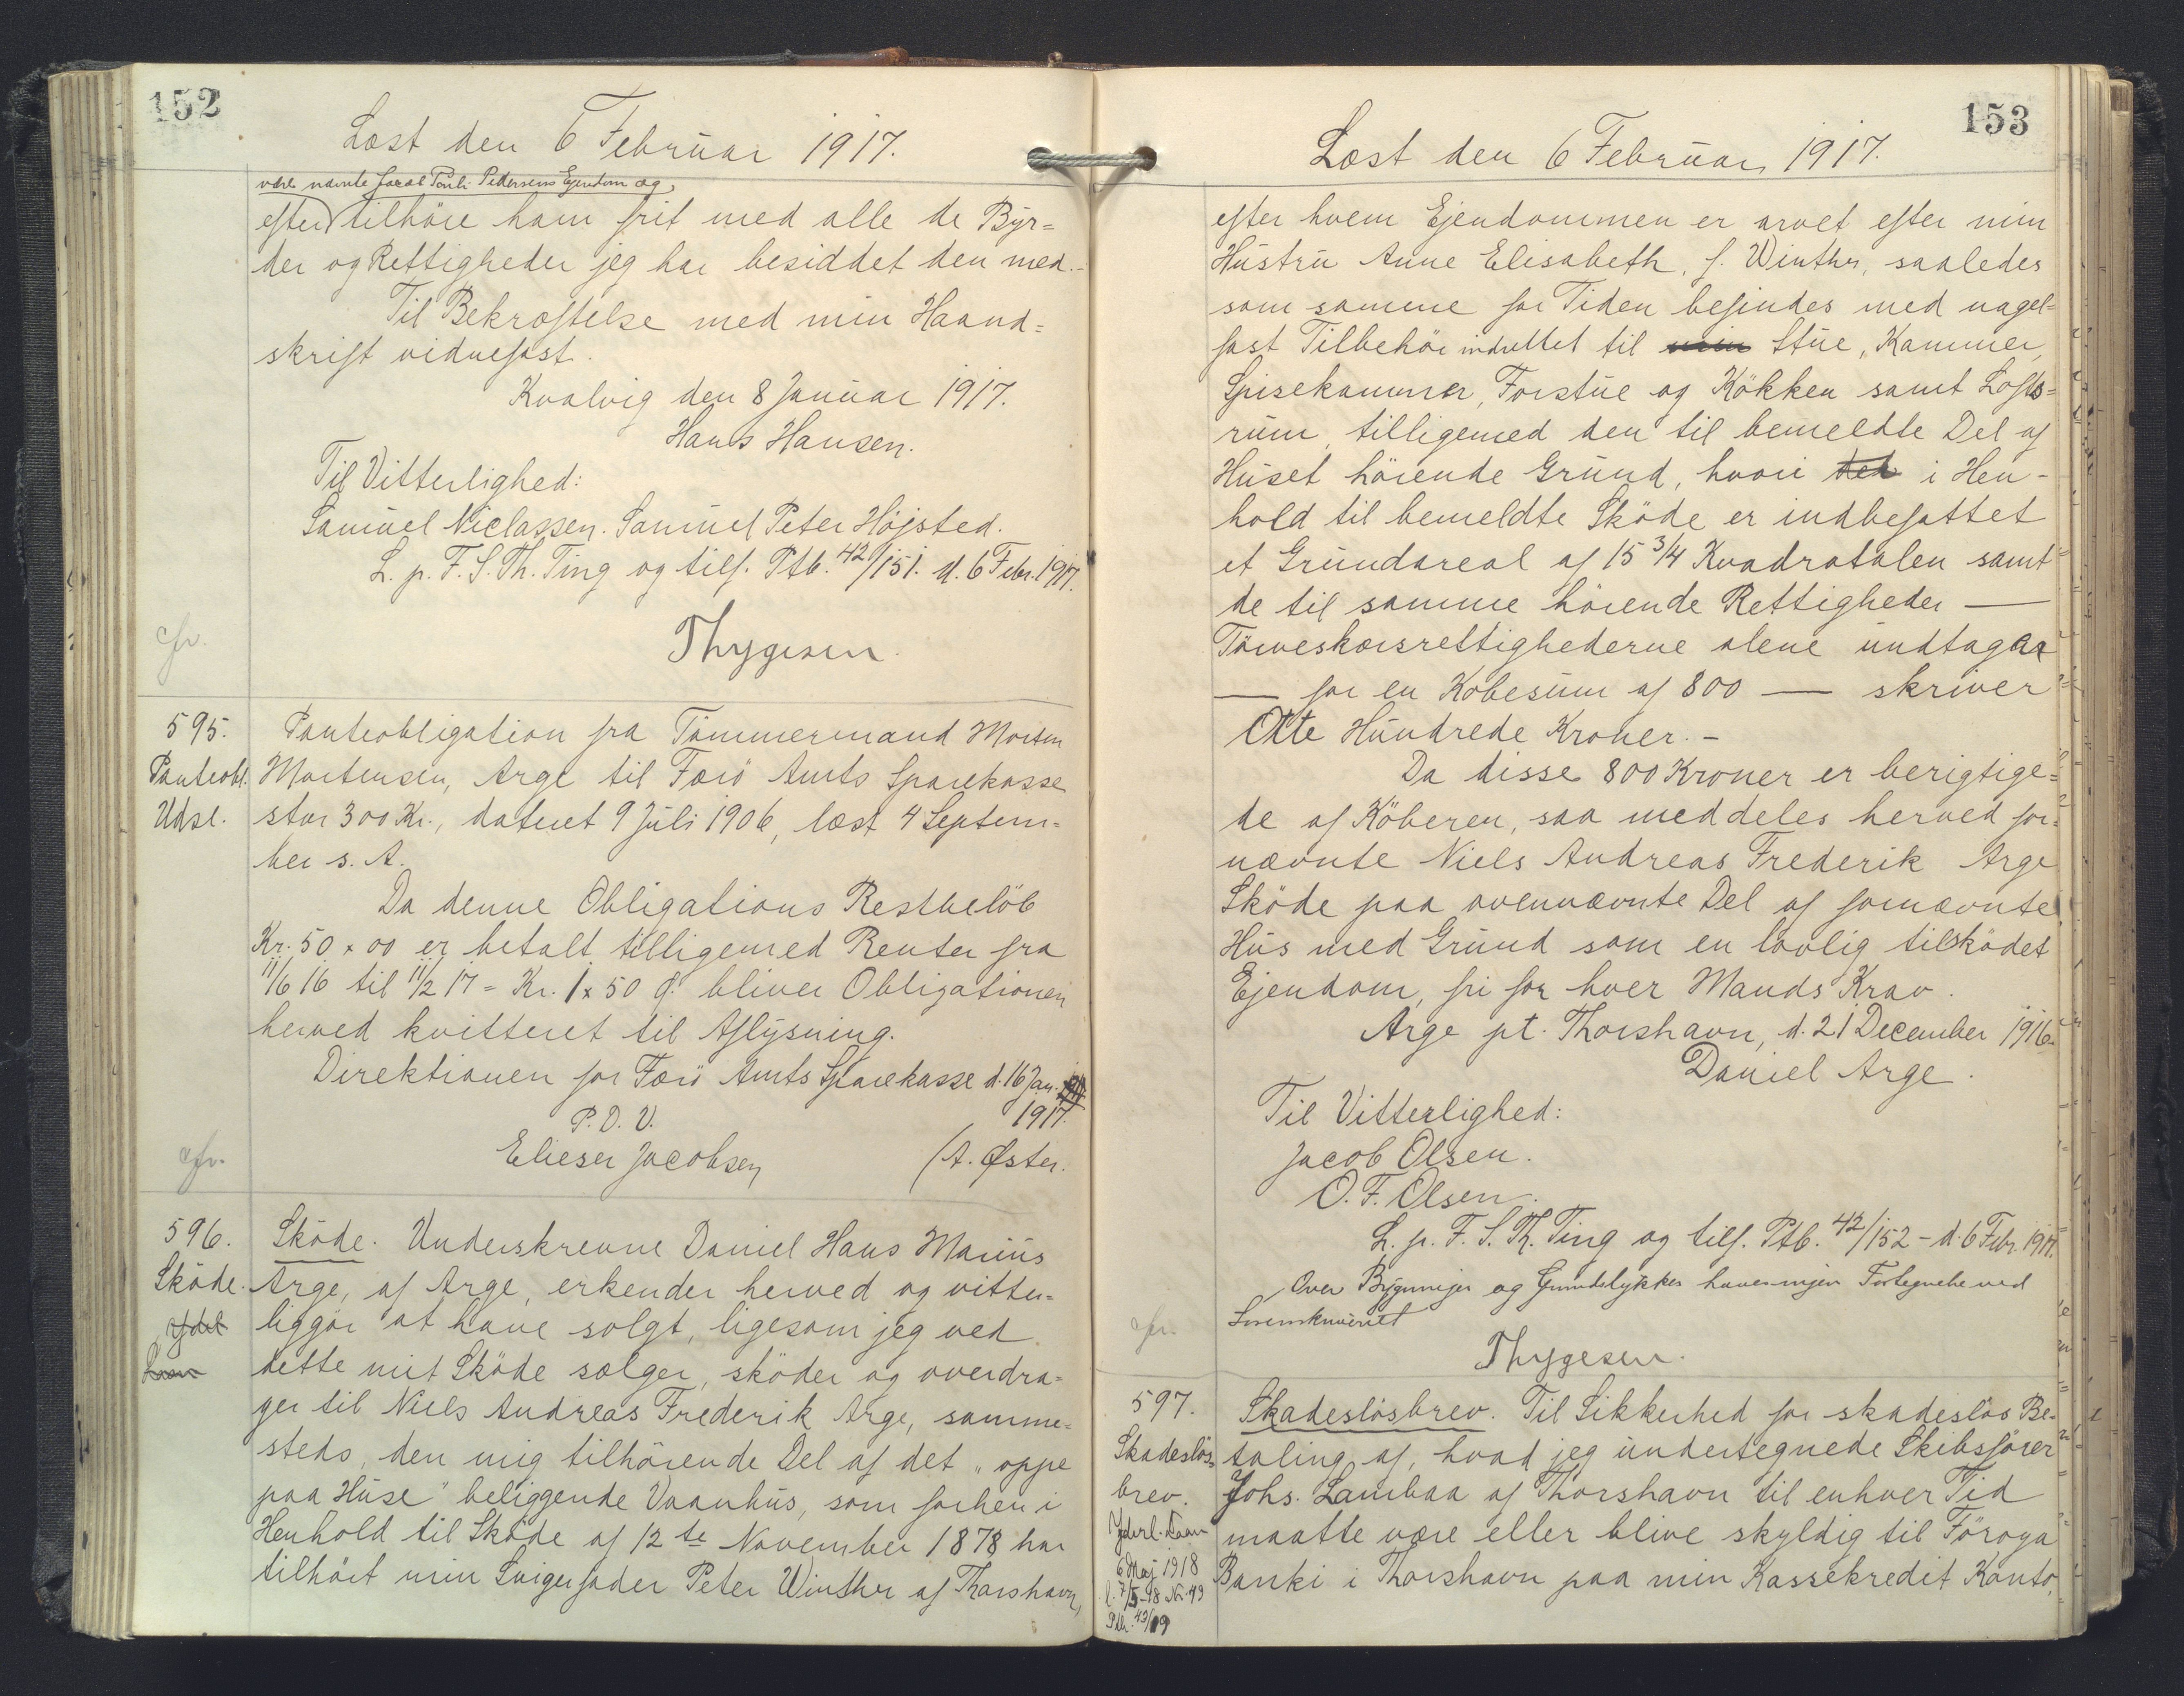 152
Læst den 6 Februar 1917.
være nævnte Jacob Pauli Pedersens Ejendom og
efter tilhöre ham frit med alle de Byr=
der og Rettigheder jeg har besiddet den med.-
Til Bekræftelse med min Haand=
skrift vidnefast.
Kvalvig den 8 Januar 1917.
Hans Hansen.
Til Vitterlighed:
Samuel Niclassen. Samuel Peter Höjsted.
L. p. F. S. Th. Ting og tilf. Ptb. 42/151. d. 6 Febr. 1917.
cfr.
Thygesen.
595.
Panteobl.
Udsl.
Panteobligation fra Tömmermand Morten
Mortensen, Arge til Færö Amts Sparekasse
stor 300 Kr., dateret 9 Juli 1906, læst 4 Septem=
ber s. A.
Da denne Obligations Restbelöb
Kr. 50 x 00 er betalt tilligemed Renter fra
11/6 16 til 11/2 17 = Kr. 1 x 50 Ø. bliver Obligationen
herved kvitteret til Aflysning.
Direktionen for Færö Amts Sparekasse d. 16 Jan.
1917.
P. D. V.
Elieser Jacobsen / A. Øster.
cfr.
596.
Sköde.
Sköde. Underskrevne Daniel Hans Marius
Arge, af Arge, erkender herved og vitter=
liggör at have solgt, ligesom jeg ved
dette mit Sköde sælger, sköder og overdra=
ger til Niels Andreas Frederik Arge, samme=
steds, den mig tilhörende Del af det "oppe
paa Huse" beliggende Vaanhus, som forhen i
Henhold til Sköde af 12te November 1878 har
tilhört min Svigerfader Peter Winther af Thorshavn,
153
Læst den 6 Februar 1917.
efter hvem Ejendommen er arvet efter min
Hustru Anne Elisabeth, f. Winther, saaledes
som samme for Tiden befindes med nagel=
fast Tilbehör indrettet til min Stue, Kammer,
Spisekammer, Forstue og Kökken samt Lofts=
rum, tilligemed den til bemeldte Del af
Huset hörende Grund, hvori det i Hen-
hold til bemeldte Sköde er indbefattet
et Grundareal af 15 3/4 Kvadratalen samt
de til samme hörende Rettigheder —
Törveskærsrettighederne alene undtagen
— for en Köbesum af 800 — skriver
Otte Hundrede Kroner. -
Da disse 800 Kroner er berigtige=
de af Köberen, saa meddeles herved for=
nævnte Niels Andreas Frederik Arge
Sköde paa ovennævnte Del af fornævnte
Hus med Grund som en lovlig tilsködet
Ejendom, fri for hver Mands Krav.
Arge pt. Thorshavn, d. 21 December 1916.
Daniel Arge.
Til Vitterlighed:
Jacob Olsen.
O. F. Olsen.
L. p. F. S. Th. Ting og tilf. Ptb. 42/152 - d. 6 Febr. 1917.
Over Bygninger og Grundstykker haves ingen Fortegnelse ved
Sorenskriveriet
cfr.
Thygesen.
597.
Skadeslös=
brev.
Yderl. Laan
6 Maj 1918
l. 7/5-18 Nr. 49
Ptb. 43/19
Skadeslösbrev. Til Sikkerhed for skadeslös Be=
taling af, hvad jeg undertegnede Skibsförer
Johs. Lambaa af Thorshavn til enhver Tid
maatte være eller blive skyldig til Föroya
Banki i Thorshavn paa min Kassekredit Konto,